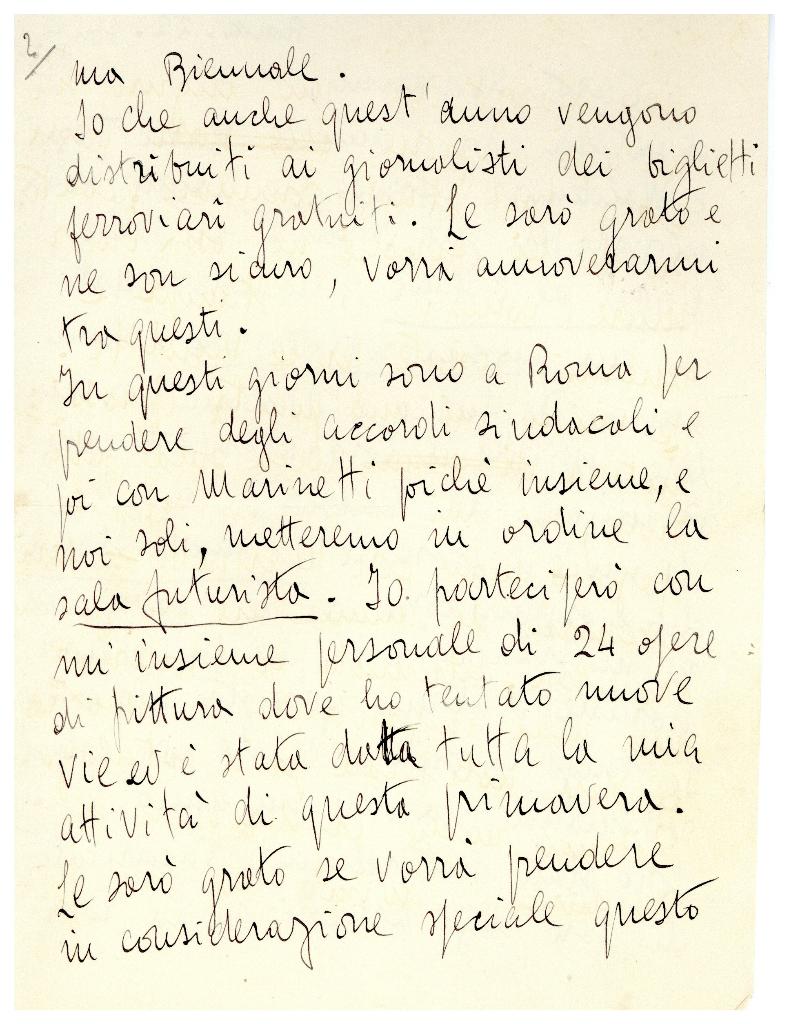 2/
ma Biennale.
So che anche quest'anno vengono
distribuiti ai giornalisti dei biglietti
ferroviari gratuiti. Le sarò grato e
ne son sicuro, vorrà annoverarmi
tra questi.
In questi giorni sono a Roma per
prendere degli accordi sindacali e
poi con Marinetti poichè insieme, e
noi soli, metteremo in ordine la
sala futurista. Io parteciperò con
un insieme personale di 24 opere
di pittura dove ho tentato nuove
vie ed è stata datta tutta la mia
attività di questa primavera.
Le sarò grato se vorrà prendere
in considerazione speciale questo